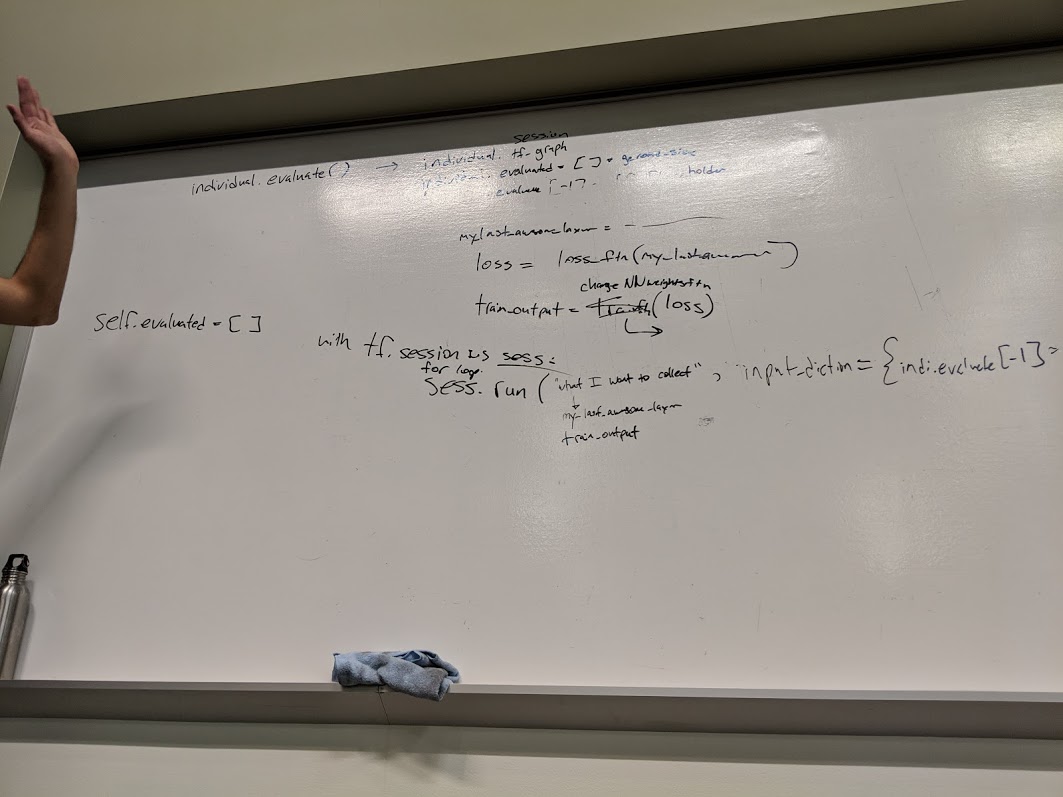 session
individual.evaluate() → individual.tf-graph
evaluated = [ ] =
[-1] holder
my_last_awesome_layer =
loss = loss_ftn(my_lastawe
change NN weights ftn
train_output = (loss)
self.evaluated = [ ]
with tf.session as sess:
for loop.
sess. run ("what I want to collect", input_diction = {indi.evaluate[-1] =
my_last_awesome_layer
train_output